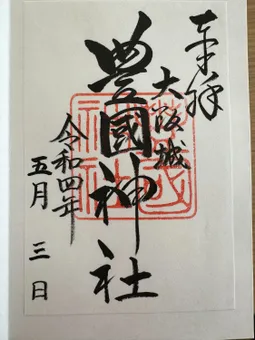 奉拝
大阪城
豊國神社
令和四年
五月 三日